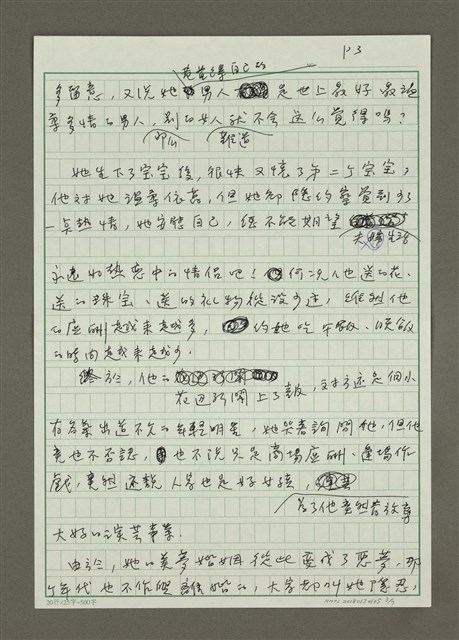 P3
竟覺得自己的
多留意，又說她男人是世上最好最溫
專多情的男人，別的女人就不會這么覺得嗎？
那么 難道
她生下了宝宝後，很快又懷了第二个宝宝，
他对她溫柔依舊，但她卻隱約察覺到少了
一点熱情，她安慰自己，總不能期望
夫婦生活
永遠如熱恋中的情侣吧！何況他送的花、
送的珠宝、送的礼物從沒少过，雖然他
的应酬越來越多，約她吃午飯、晚飯
的時間越來越少。
終於，他的
花边新聞上了報，对方还是個小
有名氣出道不久的年輕明星，她哭着詢問他，但他
竟也不否認，也不說只是商場应酬、逢場作
戲，竟然还說人家也是好女孩，
为了他竟然肯放棄
大好的演芸事業。
由於，她的美夢婚姻從此變成了惡夢，那
个年代也不作興離婚的，大家都叫她隱忍，
20行×25字=500字